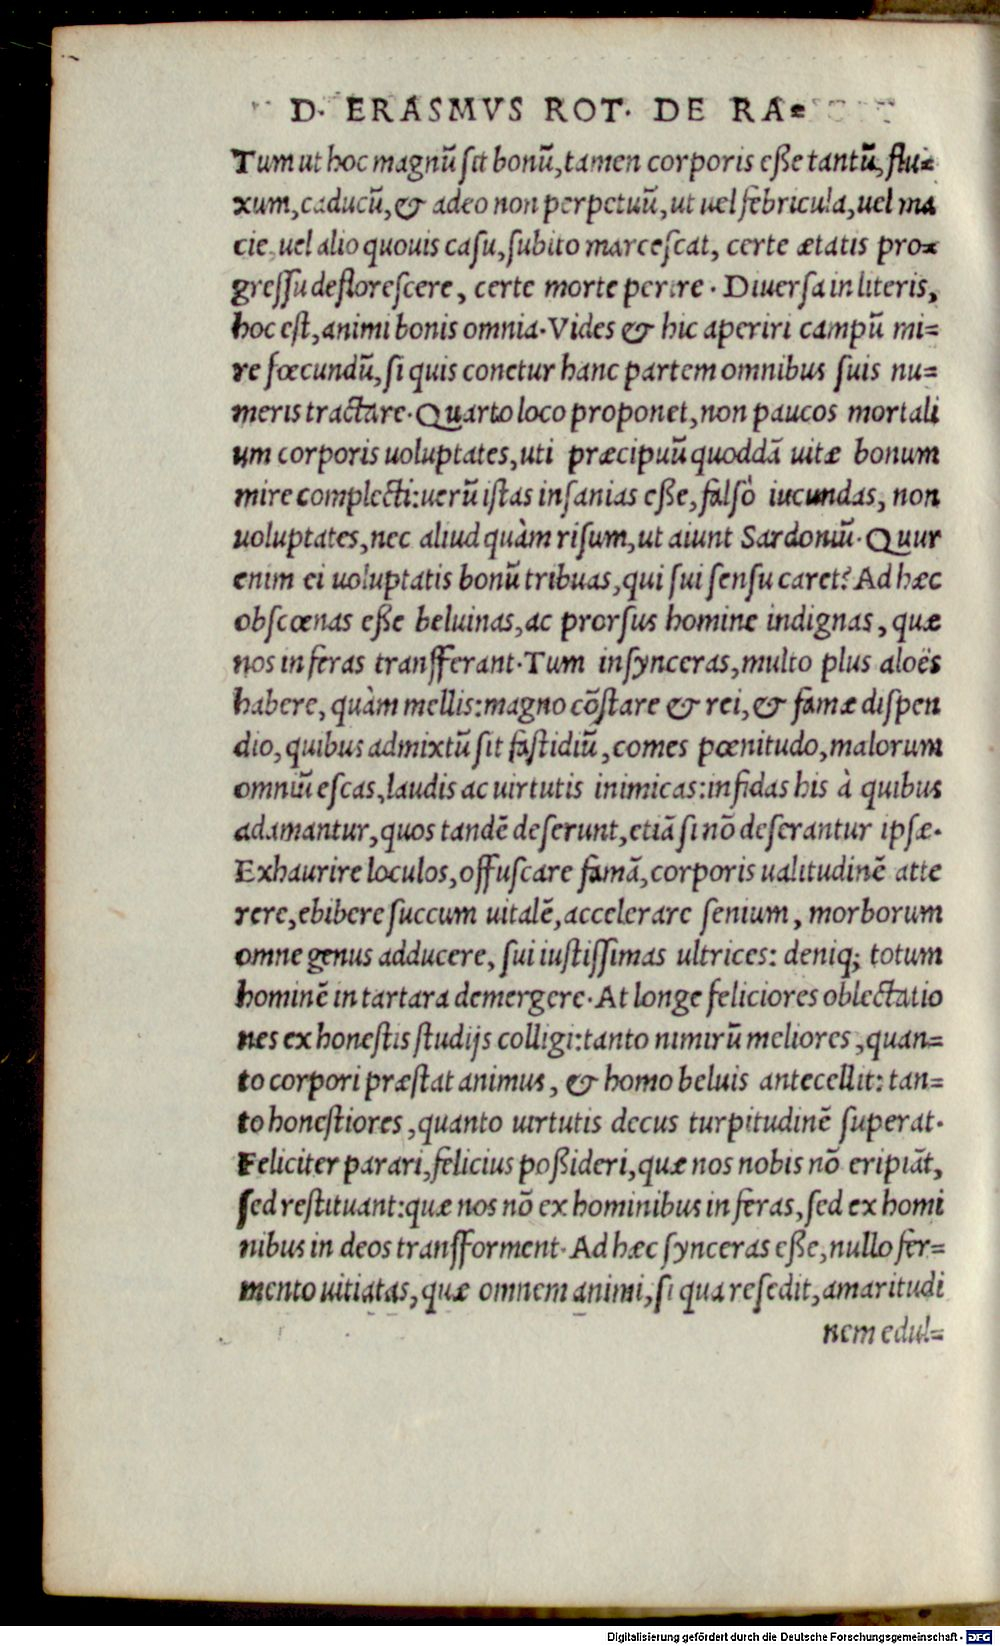 D. ERASMVS ROT. DE RA=
Tum ut hoc magnũ sit bonũ, tamen corporis eße tantũ, flu=
xum, caducũ, & adeo non perpetuũ, ut uel febricula, uel ma
cie, uel alio quouis casu, subito marcescat, certe ætatis pro=
gressu deflorescere, certe morte perire. Diuersa in literis,
hoc est, animi bonis omnia. Vides & hic aperiri campũ mi=
re fœcundũ, si quis conetur hanc partem omnibus suis nu=
meris tractare. Quarto loco proponet, non paucos mortali
um corporis uoluptates, uti præcipuũ quoddã uitæ bonum
mire complecti: uerũ istas insanias eße, falsò iucundas, non
uoluptates, nec aliud quàm risum, ut aiunt Sardoniũ. Quur
enim ei uoluptatis bonũ tribuas, qui sui sensu caret? Ad hæc
obscœnas eße beluinas, ac prorsus homine indignas, quæ
nos in feras transferant. Tum insynceras, multo plus aloës
habere, quàm mellis: magno cõstare & rei, & famæ dispen
dio, quibus admixtũ sit fastidiũ, comes pœnitudo, malorum
omniũ escas, laudis ac uirtutis inimicas: infidas his à quibus
adamantur, quos tandẽ deserunt, etiã si nõ deserantur ipsæ.
Exhaurire loculos, offuscare famã, corporis ualitudinẽ atte
rere, ebibere succum uitalẽ, accelerare senium, morborum
omne genus adducere, sui iustissimas ultrices: deniq; totum
hominẽ in tartara demergere. At longe feliciores oblectatio
nes ex honestis studijs colligi: tanto nimirũ meliores, quan=
to corpori præstat animus, & homo beluis antecellit: tan=
to honestiores, quanto uirtutis decus turpitudinẽ superat.
Feliciter parari, felicius poßideri, quæ nos nobis nõ eripiãt,
sed restituant: quæ nos nõ ex hominibus in feras, sed ex homi
nibus in deos transforment. Ad hæc synceras eße, nullo fer=
mento uitiatas, quæ omnem animi, si qua resedit, amaritudi
nem edul=
Digitalisierung gefördert durch die Deutsche Forschungsgemeinschaft - DFG